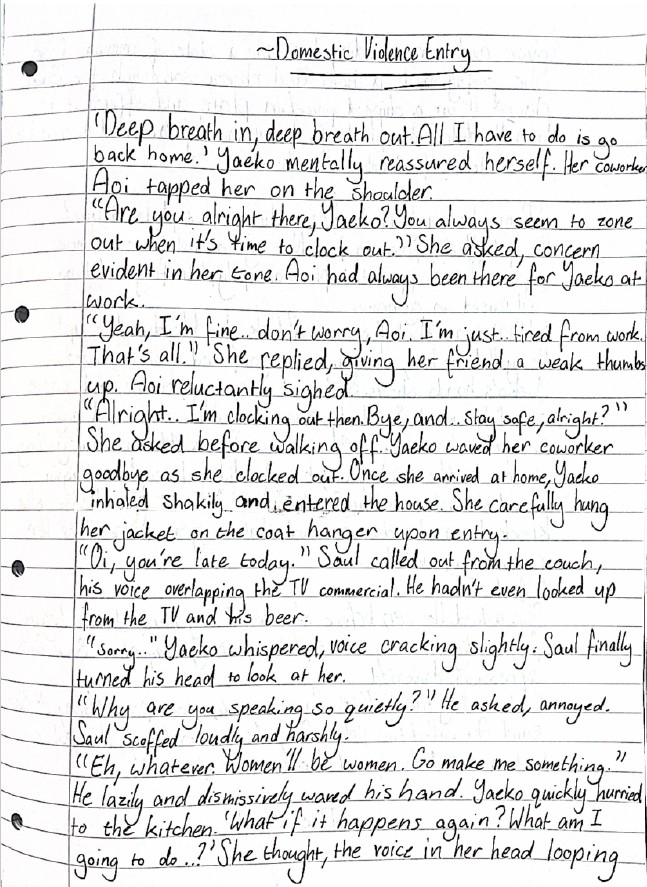 ~Domestic Violence Entry
'Deep breath in, deep breath out. All I have to do is go
back home.' Yaeko mentally reassured herself. Her coworker
Aoi tapped her on the shoulder.
"Are you alright there, Yaeko? You always seem to zone
out when it's time to clock out." She asked, concern
evident in her tone. Aoi had always been there for Yaeko at
work.
"Yeah, I'm fine.. don't worry, Aoi. I'm just.. tired from work.
That's all." She replied, giving her friend a weak thumbs
up. Aoi reluctantly sighed.
"Alright.. I'm clocking out then. Bye, and.. stay safe, alright?"
She asked before walking off. Yaeko waved her coworker
goodbye as she clocked out. Once she arrived at home, Yaeko
inhaled shakily and entered the house. She carefully hung
her jacket on the coat hanger upon entry.
"Oi, you're late today." Saul called out from the couch,
his voice overlapping the TV commercial. He hadn't even looked up
from the TV and his beer.
"Sorry.." Yaeko whispered, voice cracking slightly. Saul finally
turned his head to look at her.
"Why are you speaking so quietly?" He asked, annoyed.
Saul scoffed loudly and harshly.
"Eh, whatever. Women'll be women. Go make me something."
He lazily and dismissively waved his hand. Yaeko quickly hurried
to the kitchen. 'What if it happens again? What am I
going to do..?' She thought, the voice in her head looping